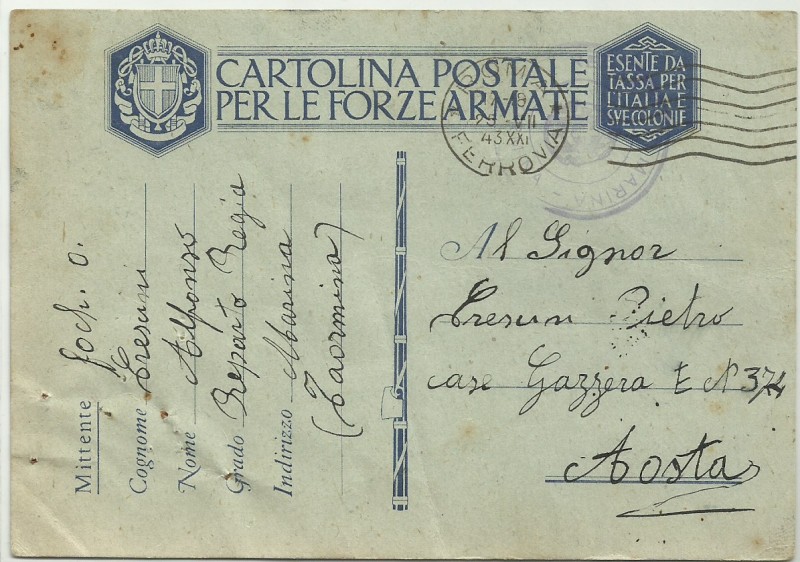 CARTOLINA POSTALE
PER LE FORZE ARMATE
ESENTE DA
TASSA PER
L'ITALIA E
SVE COLONIE
43 XXI
FERROVIA
MARINA
Mittente Foch. o.
Cognome Tresini
Nome Alfonso
Grado Reparto Regia
Indirizzo Marina
(Taormina)
Al Signor
Tresini Pietro
case Gazzera E N 374
Aosta